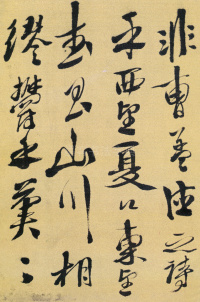 非曹孟德之詩
乎西望夏口東望
武昌山川相
繆鬱乎蒼〻